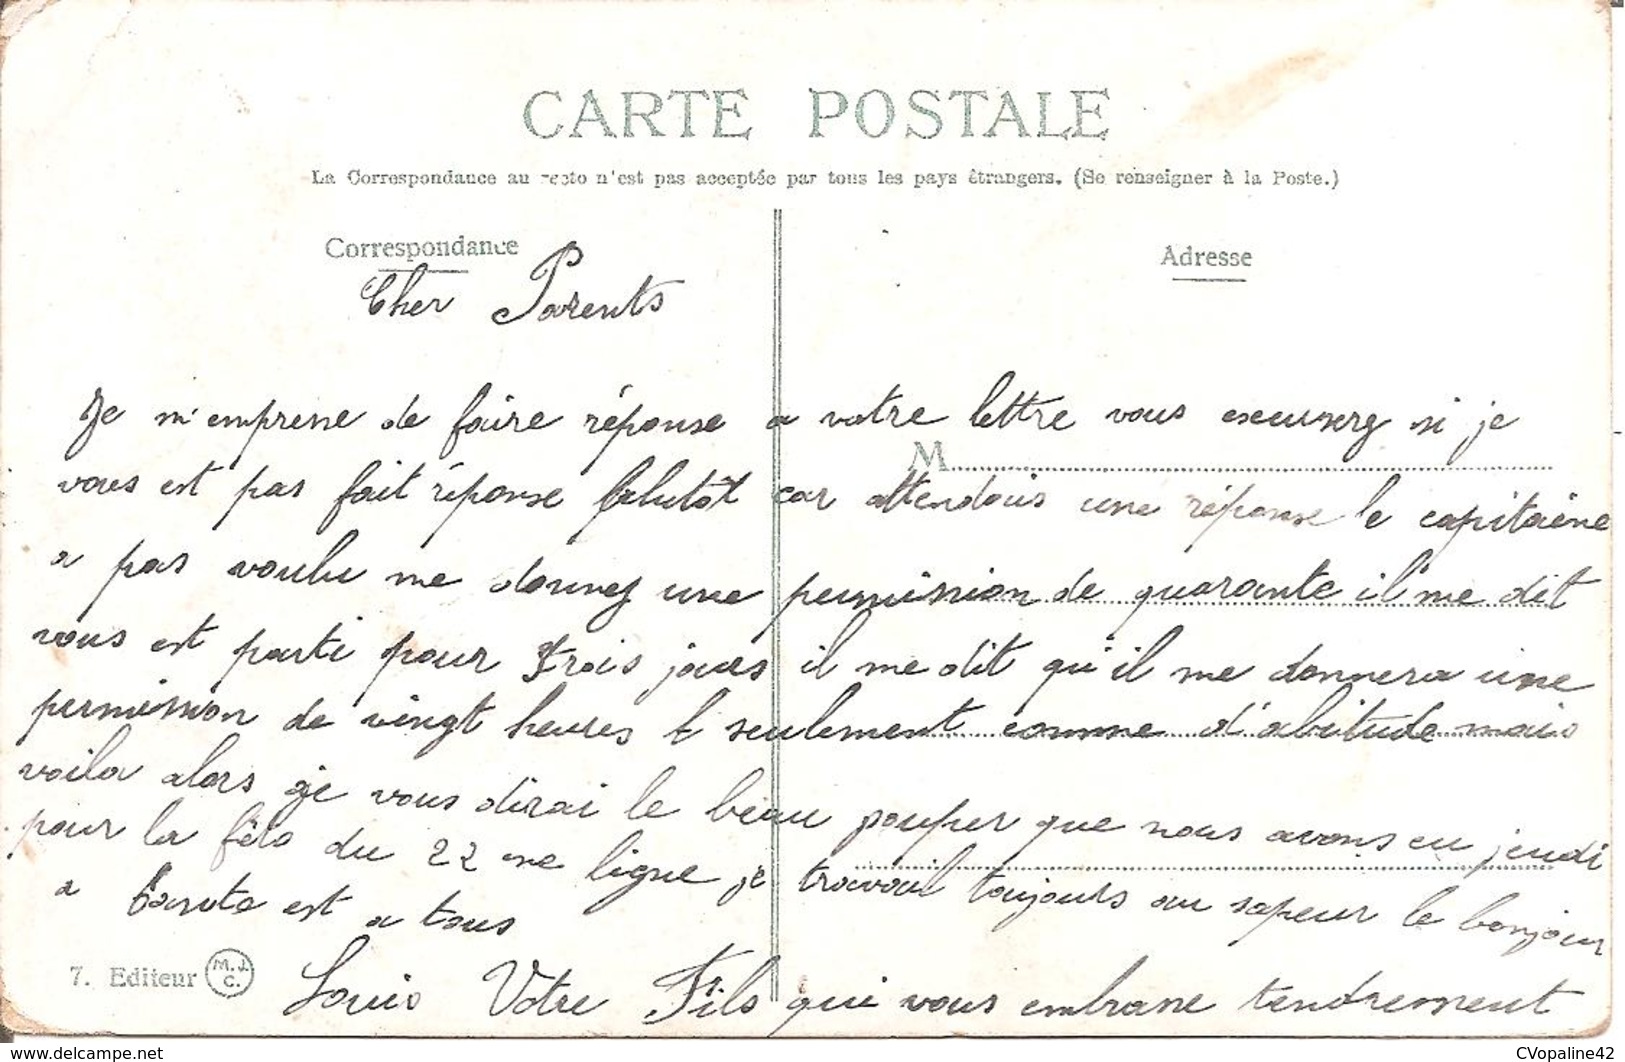 CARTE POSTALE
La Correspondance au recto n'est pas acceptée par tous les pays étrangers. (Se renseigner à la Poste.)
Correspondance
Adresse
Cher Parents
Je m'emprese de faire réponse a votre lettre vous excuserz si je
M
vous est pas fait réponse plutôt car attendais une réponse le capitaine
a pas voulu me donnez une permission de quarante il me dit
vous est parti pour trois jours il me dit qu'il me donnera une
permission de vingt heures seulement comme d'abitude mais
voila alors je vous dirai le beau que nous avons eu jeudi
pour la fête du 22 me ligne je travail toujours au sapeur le bonjour
a est a tous
7. Editeur M.J.C.
Louis Votre Fils qui vous embrase tendrement
CVopaline42